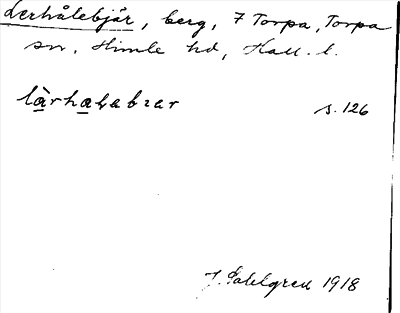 Lerhålebjär, berg, 7 Torpa, Torpa
sn, Himle hd, Hall. l.
s. 126
J. Sahlgren 1918